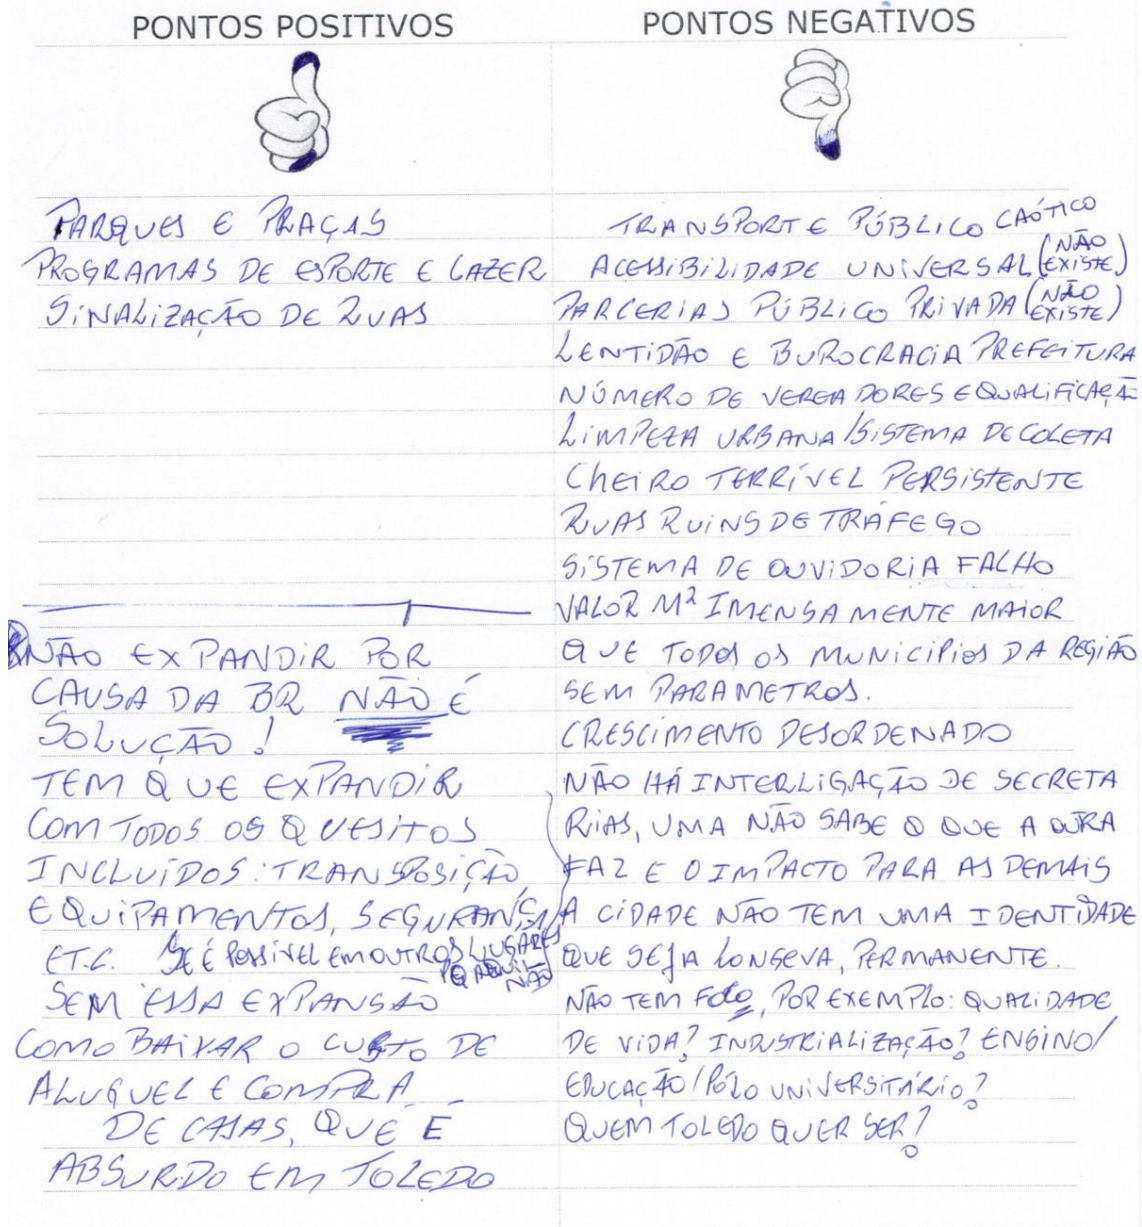 PONTOS POSITIVOS
PARQUES E PRAÇAS
PROGRAMAS DE ESPORTE E LAZER
SINALIZAÇÃO DE RUAS
NÃO EXPANDIR POR
CAUSA DA BR NÃO É
SOLUÇÃO!
TEM QUE EXPANDIR
COM TODOS OS QUESITOS
INCLUÍDOS: TRANSPOSIÇÃO,
EQUIPAMENTOS, SEGURANÇA
ET.C. SE É POSSÍVEL EM OUTROS LUGARES
PQ AQUI NÃO
SEM ESSA EXPANSÃO
COMO BAIXAR O CUSTO DE
ALUGUEL E COMPRA
DE CASAS, QUE É
ABSURDO EM TOLEDO
PONTOS NEGATIVOS
TRANSPORTE PÚBLICO CAÓTICO
ACESSIBILIDADE UNIVERSAL (NÃO EXISTE)
PARCERIAS PÚBLICO PRIVADA (NÃO EXISTE)
LENTIDÃO E BUROCRACIA PREFEITURA
NÚMERO DE VEREADORES E QUALIFICAÇÃO
LIMPEZA URBANA/SISTEMA DE COLETA
CHEIRO TERRÍVEL PERSISTENTE
RUAS RUINS DE TRÁFEGO
SISTEMA DE OUVIDORIA FALHO
VALOR M² IMENSAMENTE MAIOR
QUE TODOS OS MUNICIPIOS DA REGIÃO
SEM PARAMETROS.
CRESCIMENTO DESORDENADO
NÃO HÁ INTERLIGAÇÃO DE SECRETA
RIAS, UMA NÃO SABE O QUE A OUTRA
FAZ E O IMPACTO PARA AS DEMAIS
A CIDADE NÃO TEM UMA IDENTIDADE
QUE SEJA LONGEVA, PERMANENTE.
NÃO TEM FOCO, POR EXEMPLO: QUALIDADE
DE VIDA? INDUSTRIALIZAÇÃO? ENSINO/
EDUCAÇÃO/PÓLO UNIVERSITÁRIO?
QUEM TOLEDO QUER SER?